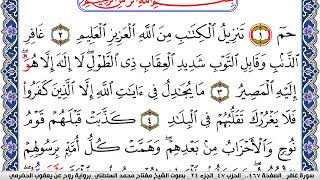 بِسْمِ ٱللَّهِ ٱلرَّحْمَٰنِ ٱلرَّحِيمِ
حمٓ ١ تَنزِيلُ ٱلْكِتَٰبِ مِنَ ٱللَّهِ ٱلْعَزِيزِ ٱلْعَلِيمِ ٢ غَافِرِ
ٱلذَّنۢبِ وَقَابِلِ ٱلتَّوْبِ شَدِيدِ ٱلْعِقَابِ ذِى ٱلطَّوْلِ لَآ إِلَٰهَ إِلَّا هُوَ
إِلَيْهِ ٱلْمَصِيرُ ٣ مَا يُجَٰدِلُ فِىٓ ءَايَٰتِ ٱللَّهِ إِلَّا ٱلَّذِينَ كَفَرُوا۟
فَلَا يَغْرُرْكَ تَقَلُّبُهُمْ فِى ٱلْبِلَٰدِ ٤ كَذَّبَتْ قَبْلَهُمْ قَوْمُ
نُوحٍ وَٱلْأَحْزَابُ مِنۢ بَعْدِهِمْ وَهَمَّتْ كُلُّ أُمَّةٍۭ بِرَسُولِهِمْ
سورة غافر - الصفحة ٤٦٧ - الحزب ٤٧ الجزء ٢٤ - بصوت الشيخ مفتاح محمد السلطني برواية روح عن يعقوب الحضرمي